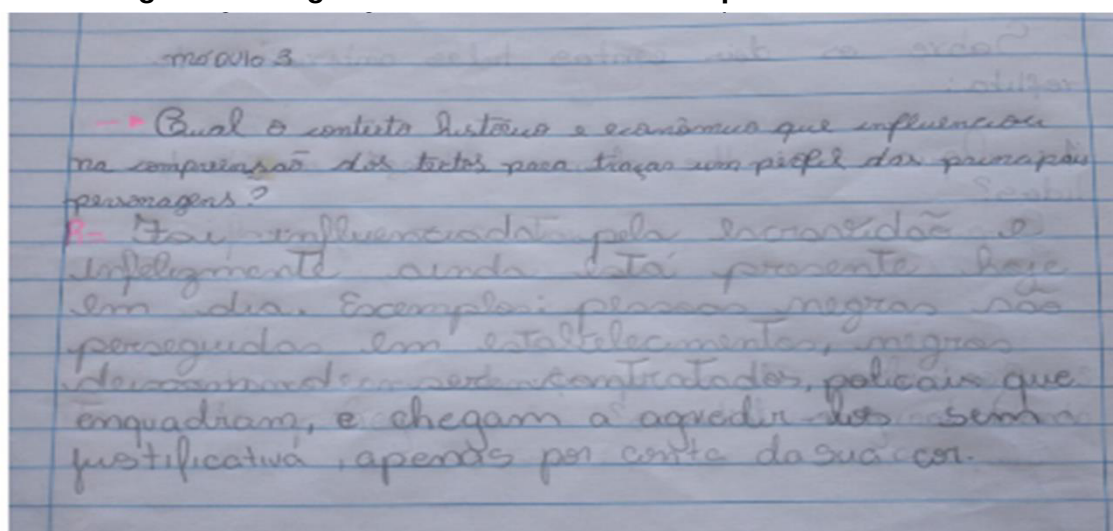 módulo 3
Qual o contexto histórico e econômico que influenciou
na compreensão dos textos para traçar um perfil dos principais
personagens?
R= Foi influenciada pela escravidão e
infelizmente ainda está presente hoje
em dia. Exemplo: pessoas negras são
perseguidas em estabelecimentos, negros
contratados, policais que
enquadram, e chegam a agredir-los sem
justificativa, apenas por conta da sua cor.